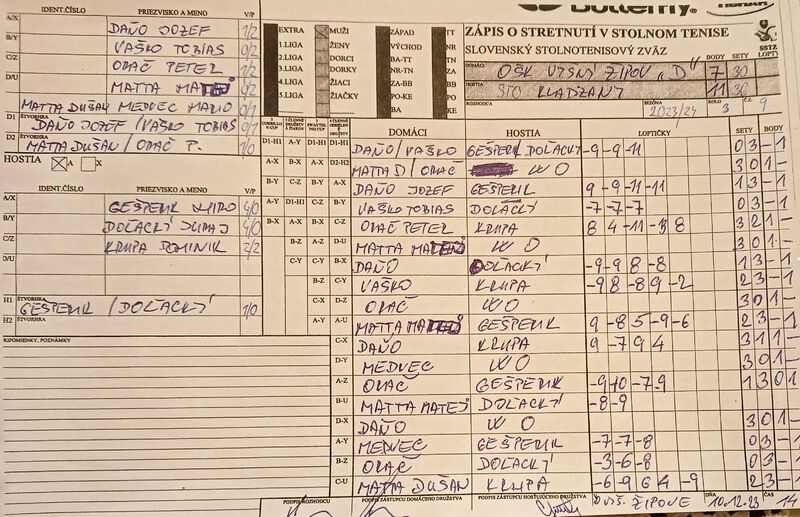 Butterfly
IDENT.ČÍSLO PRIEZVISKO A MENO V/P
A/X DAŇO JOZEF 1/2
B/Y VAŠKO TOBIAS 0/2
C/Z ORAČ PETER 1/2
D/U MATTA 0/2
MATTA DUŠAN MEDVEC MARIO 0/1
D1 ŠTVORHRA DAŇO JOZEF / VAŠKO TOBIAS 0/1
D2 MATTA DUŠAN / ORAČ P. 1/0
HOSTIA A X
IDENT.ČÍSLO PRIEZVISKO A MENO V/P
A/Y GEŠPERIK MIRO 4/0
B/X DOĽACKÝ JURAJ 4/0
C/Z KRUPA DOMINIK 2/2
D/U
H1 ŠTVORHRA GEŠPERIK / DOĽACKÝ 1/0
H2 ŠTVORHRA
PRIPOMIENKY, POZNÁMKY
EXTRA MUŽI ZÁPAD TT
1.LIGA ŽENY VÝCHOD NR
2.LIGA DORCI BA-TT TN
3.LIGA DORKY NR-TN ZA
4.LIGA ŽIACI ZA-BB
5.LIGA ŽIAČKY PO-KE
BA KE
ZÁPIS O STRETNUTÍ V STOLNOM TENISE
SLOVENSKÝ STOLNOTENISOVÝ ZVÄZ SSTZ
DOMÁCI BODY SETY LOPT
OŠK VYŠNÝ ŽIPOV „D" 7 30
HOSTIA STO KLADZANY 11 36
ROZHODCA SEZÓNA 2023/24 KOLO 3 Č.Z. 9
DOMÁCI HOSTIA LOPTIČKY SETY BODY
D1-H1 DAŇO/VAŠKO GEŠPERIK DOĽACKÝ -9 -9 -11 0 3 - 1
D2-H2 MATTA D / ORAČ W O 3 0 1 -
A-X DAŇO JOZEF GEŠPERIK 9 -9 -11 -11 1 3 - 1
B-Y VAŠKO TOBIAS DOĽACKÝ -7 -7 -7 0 3 - 1
C-Z ORAČ PETER KRUPA 8 4 -11 -3 8 3 2 1 -
D-U MATTA W O 3 0 1 -
B-X DAŇO DOĽACKÝ -9 -9 8 -8 1 3 - 1
C-Y VAŠKO KRUPA -9 8 -8 9 -2 2 3 - 1
D-Z ORAČ W O 3 0 1 -
A-U MATTA GEŠPERIK 9 -8 5 -9 -6 2 3 - 1
C-X DAŇO KRUPA 9 -7 9 4 3 1 1 -
D-Y MEDVEC W O 3 0 1 -
A-Z ORAČ GEŠPERIK -9 10 -7 -9 1 3 0 1
B-U MATTA MATEJ DOĽACKÝ -8 -9
D-X DAŇO W O 3 0 1 -
A-Y MEDVEC GEŠPERIK -7 -7 -8 0 3 - 1
B-Z ORAČ DOĽACKÝ -3 -6 -8 0 3 - 1
C-U MATTA DUŠAN KRUPA -6 -9 6 4 -9 2 3 - 1
PODPIS ROZHODCU PODPIS ZÁSTUPCU DOMÁCEHO DRUŽSTVA PODPIS ZÁSTUPCU HOSŤUJÚCEHO DRUŽSTVA V VYŠ. ŽIPOVE DŇA 10.12.23 ČAS 14